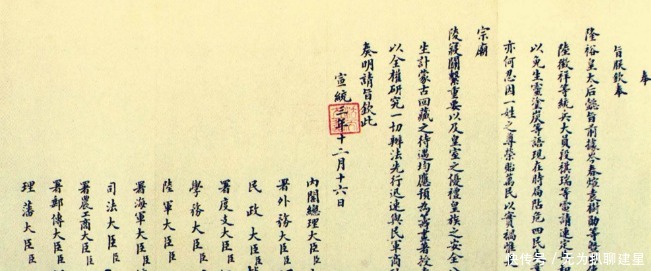 奉
旨朕欽奉
隆裕皇太后懿旨前據岑春煊袁樹勛等暨
陸徵祥等統兵大員段祺瑞等電請速定
以免生靈塗炭等語現在時局阽危四民
亦何忍因一姓之尊榮貽萬民以實禍惟
宗廟
陵寢關繫重要以及皇室之優禮皇族之安全
生計蒙古回藏之待遇均應預為籌畫著授
以全權研究一切辦法先行迅速與民軍商
奏明請旨欽此
宣統三年十二月十六日
內閣總理大臣臣
署外務大臣臣
民政大臣臣
署度支大臣臣
學務大臣臣
陸軍大臣臣
署海軍大臣臣
司法大臣臣
署農工商大臣臣
署郵傳大臣臣
理藩大臣臣
快传号/无为叙聊建星